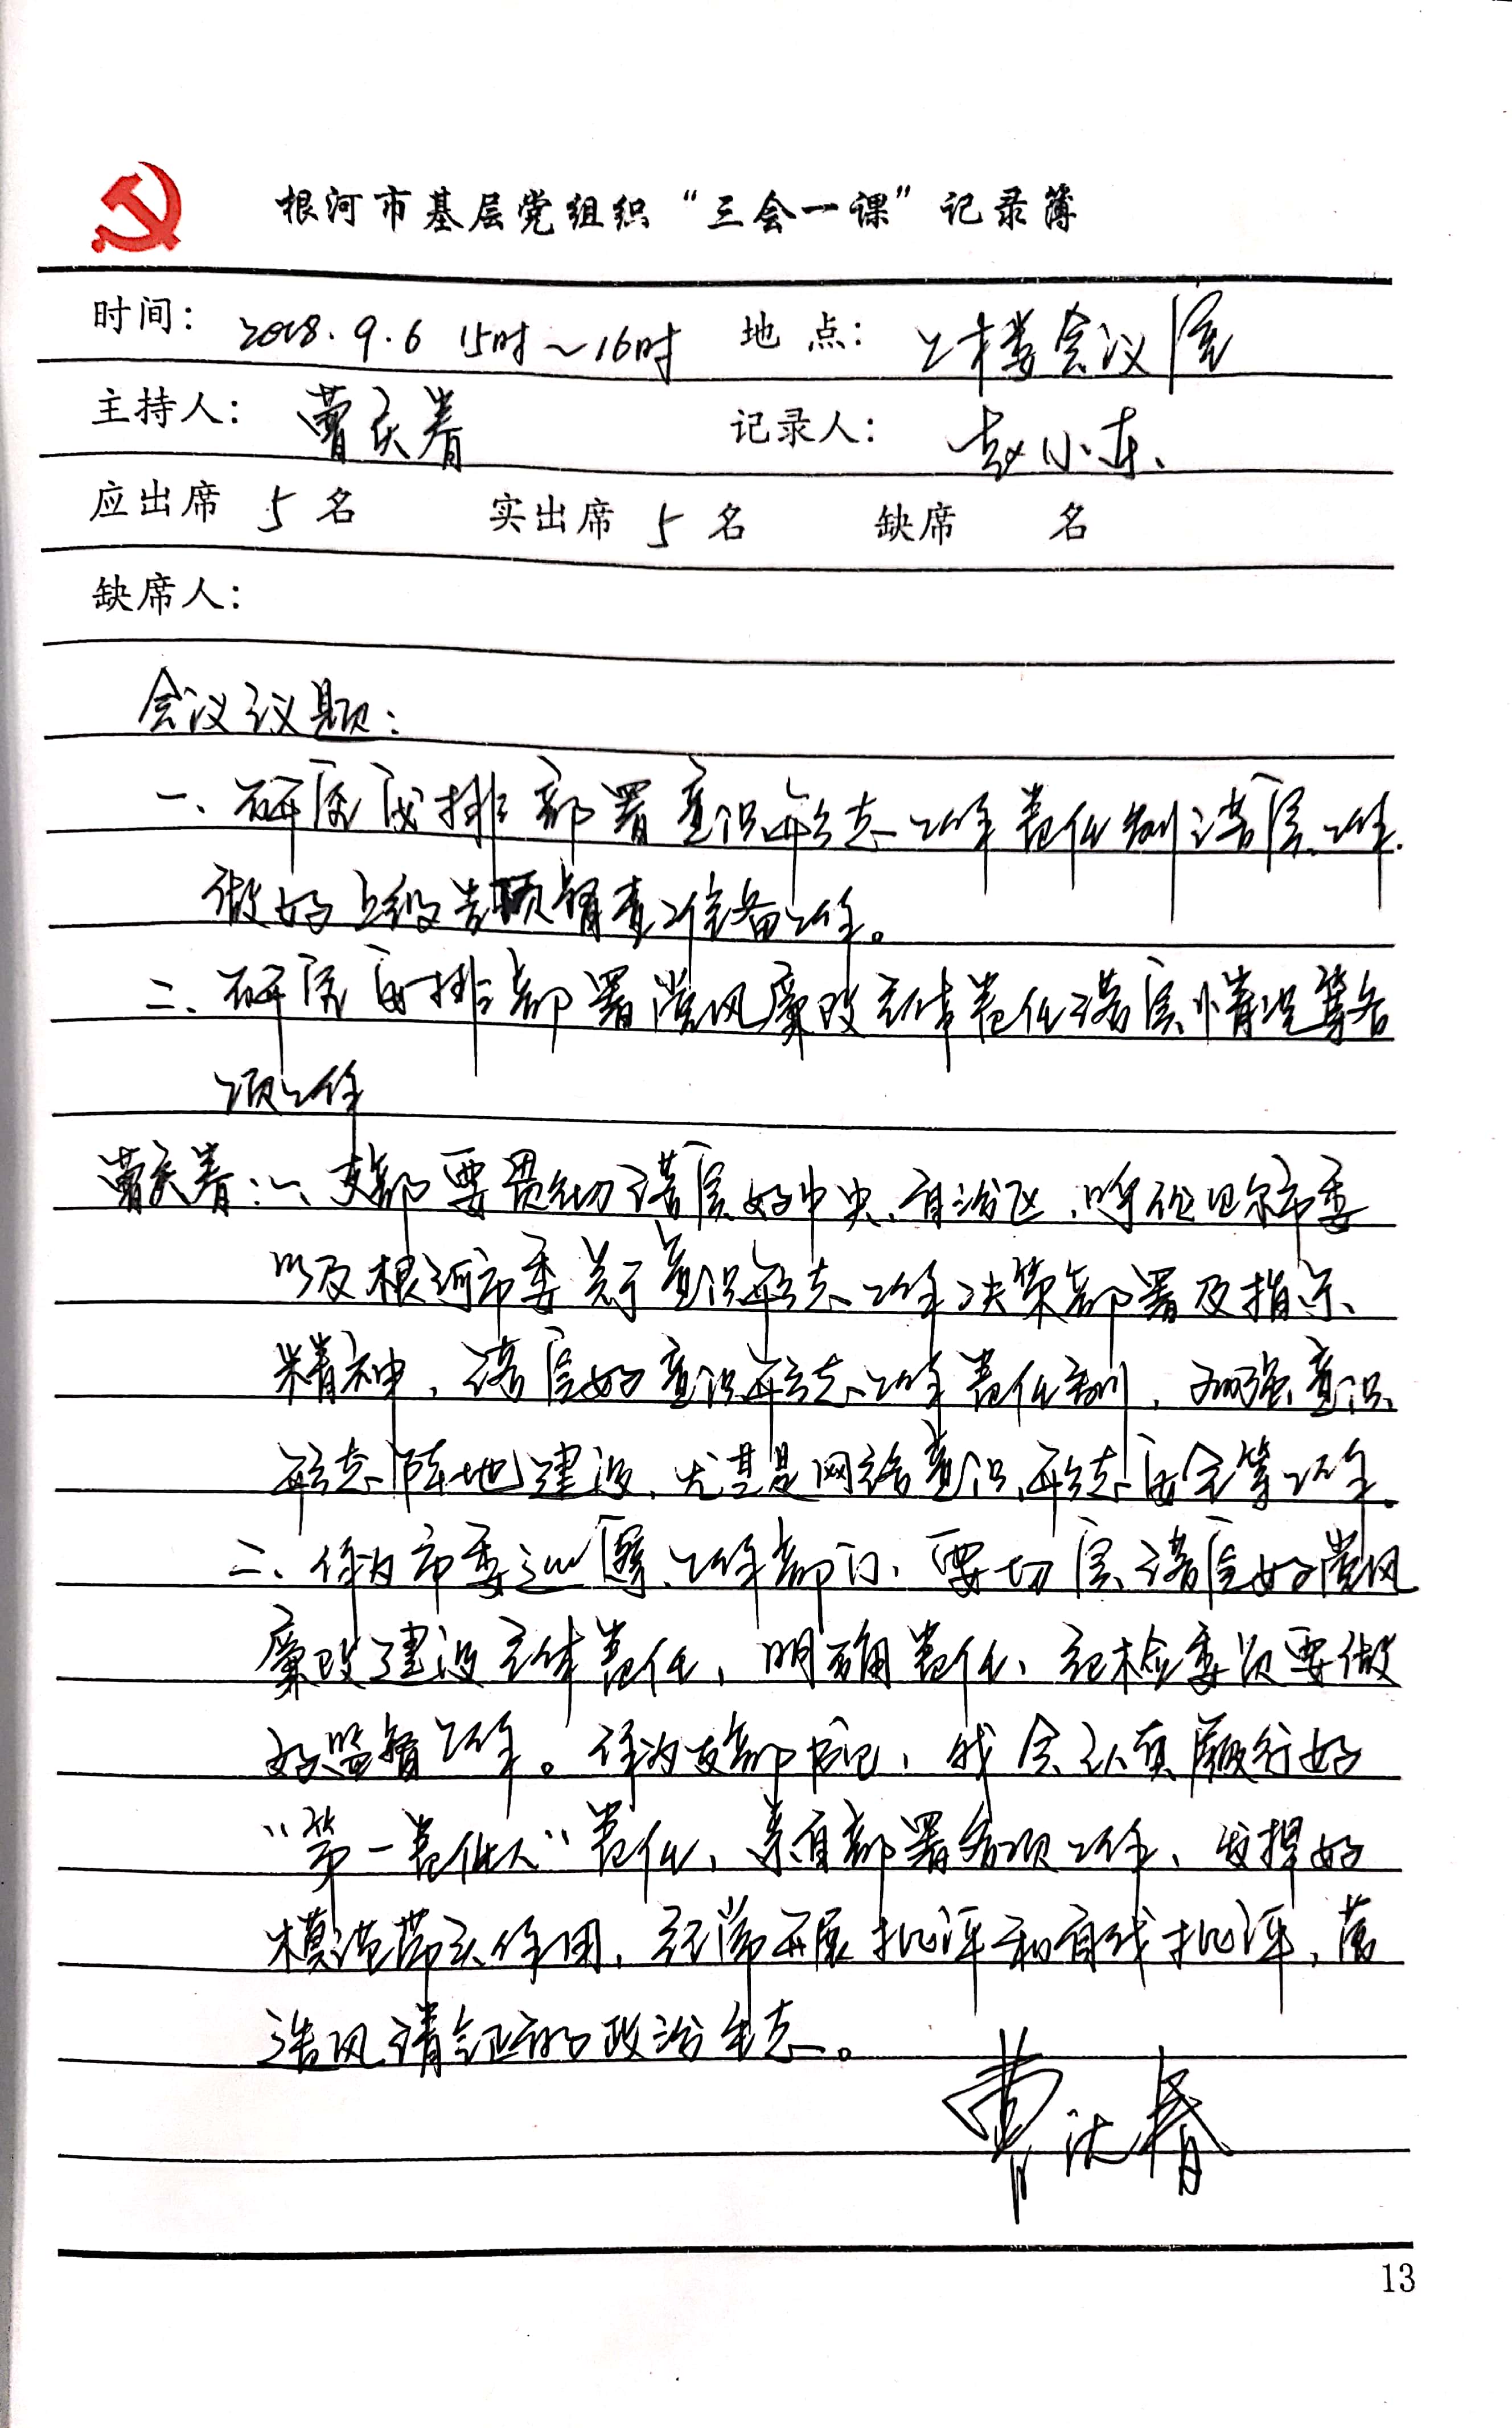 根河市基层党组织“三会一课”记录簿
时间：2018.9.6 15时～16时 地点：二楼会议室
主持人：曹庆春 记录人：赵小东
应出席 5 名 实出席 5 名 缺席 名
缺席人：
会议议题：
一、研究安排部署意识形态工作责任制落实工作.
做好上级专项督查准备工作。
二、研究安排部署党风廉政主体责任落实情况等各
项工作
曹庆春：一、支部要贯彻落实好中央、自治区、呼伦贝尔市委
以及根河市委关于意识形态工作决策部署及指示
精神，落实好意识形态工作责任制，加强意识
形态阵地建设，尤其是网络意识形态安全等工作.
二、作为市委巡察工作部门，要切实落实好党风
廉政建设主体责任，明确责任，纪检委员要做
好监督工作。作为支部书记，我会认真履行好
“第一责任人”责任，亲自部署各项工作，发挥好
模范带头作用，经常开展批评和自我批评，营
造风清气正的政治生态。
曹庆春
13